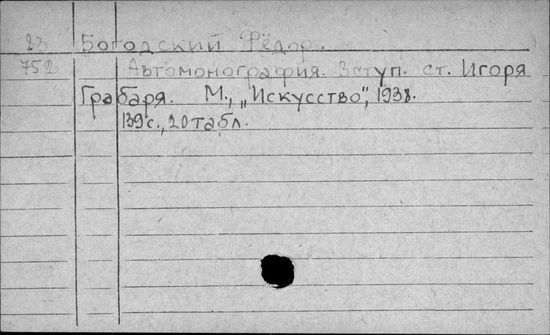 23 Богодский Фёдор.
752 Автомонография. Вступ. ст. Игоря
Грабаря. М., „Искусство", 1938.
139 с., 20 табл.